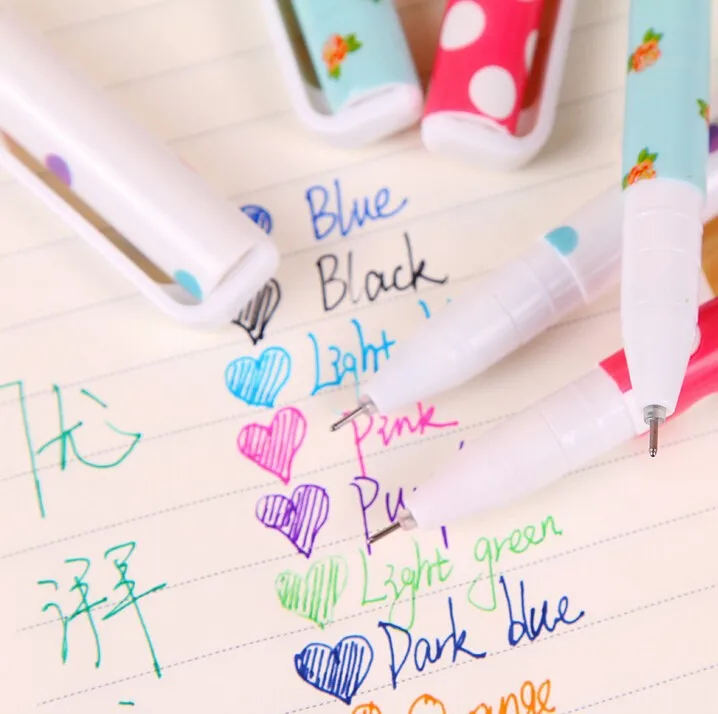 Blue
Black
Light
Pink
Light green
Dark blue
Orange